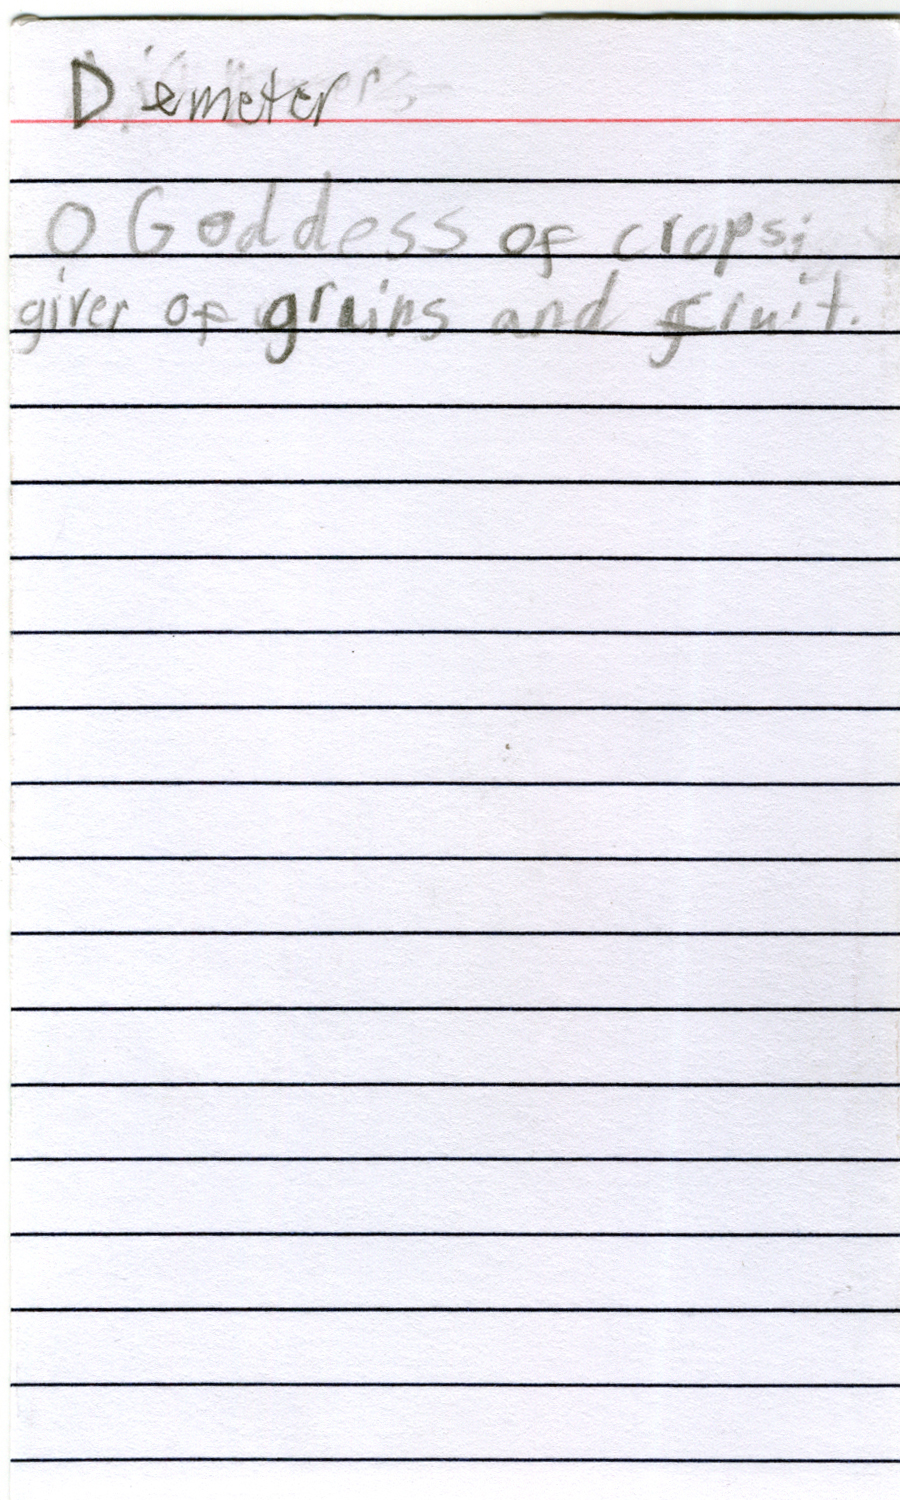 Demeter
o Goddess of crops;
giver of grains and fruit.